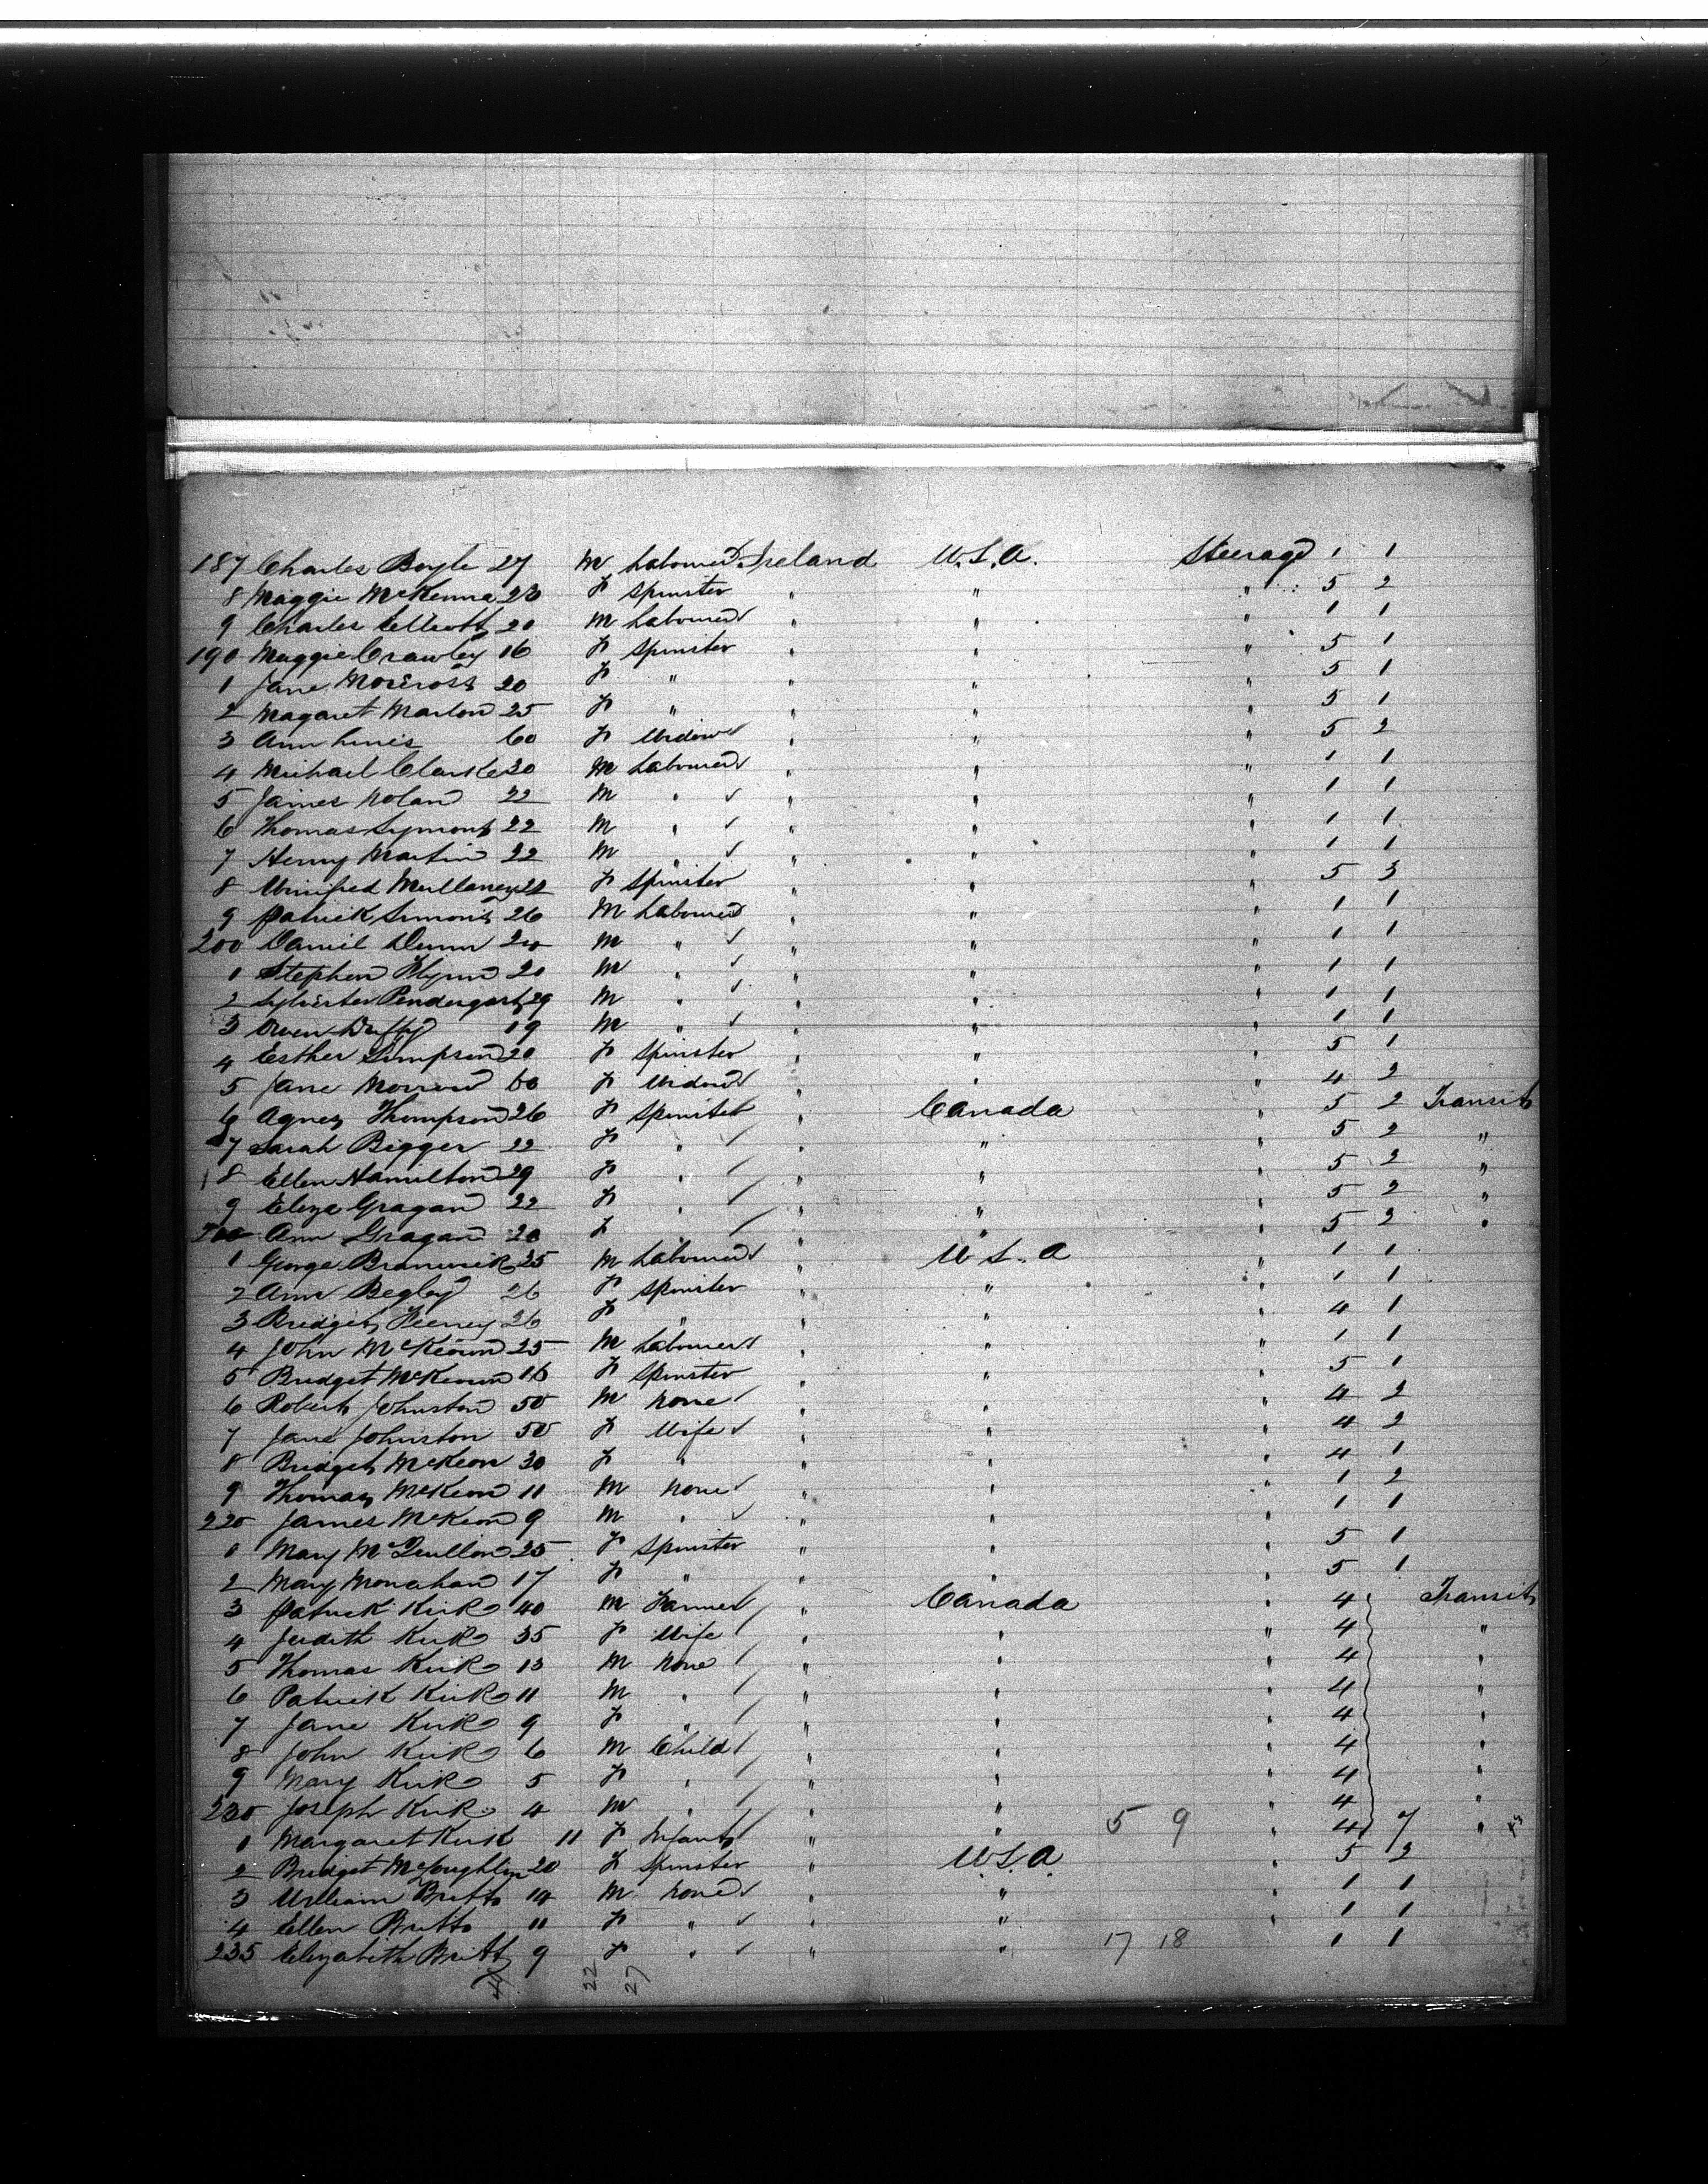 187 Charles Boyle 27 M Labourer Ireland U.S.A. Steerage 1 1
8 Maggie McKenna 23 F Spinster " " " 5 2
9 Charles Elliott 20 M Labourer " " " 1 1
190 Maggie Crawley 16 F Spinster " " " 5 1
1 Jane 20 F " " " " 5 1
2 Magaret Marlon 25 F " " " " 5 1
3 Ann 60 F Widow " " " 5 2
4 Michael Clarke 20 M Labourer " " " 1 1
5 James Nolan 22 M " " " " 1 1
6 Thomas 22 M " " " " 1 1
7 Henry Martin 22 M " " " " 1 1
8 Winifred Mullaney 22 F Spinster " " " 5 3
9 Patrick Simons 26 M Labourer " " " 1 1
200 Daniel Dunn 20 M " " " " 1 1
1 Stephen Flynn 20 M " " " " 1 1
2 Sylvester Pendergast 29 M " " " " 1 1
3 Owen Duffy 19 M " " " " 1 1
4 Esther Simpson 20 F Spinster " " " 5 1
5 Jane Morrow 60 F Widow " " " 4 2
6 Agnes Thompson 26 F Spinster " Canada " 5 2 Transit
7 Sarah Bigger 22 F " " " " 5 2 "
8 Ellen Hamilton 29 F " " " " 5 2 "
9 Eliza Gragan 22 F " " " " 5 2 "
200 Ann Gragan 20 F " " " " 5 2 "
1 George 25 M Labourer " U S. A " 1 1
2 Ann Begley 26 F Spinster " " " 1 1
3 Bridget Feeney 26 F " " " " 4 1
4 John McKeown 25 M Labourer " " " 1 1
5 Bridget McKeown 16 F Spinster " " " 5 1
6 Robert Johnston 50 M None " " " 4 2
7 Jane Johnston 50 F Wife " " " 4 2
8 Bridget McKeon 30 F " " " " 4 1
9 Thomas McKeon 11 M None " " " 1 2
220 James McKeon 9 M " " " " 1 1
1 Mary McQuillon 25 F Spinster " " " 5 1
2 Mary Monahan 17 F " " " " 5 1
3 Patrick Kirk 40 M Farmer " Canada " 4 Transit
4 Judith Kirk 35 F Wife " " " 4 "
5 Thomas Kirk 13 M None " " " 4 "
6 Patrick Kirk 11 M " " " " 4 "
7 Jane Kirk 9 F " " " " 4 "
8 John Kirk 6 M Child " " " 4 "
9 Mary Kirk 5 F " " " " 4 "
230 Joseph Kirk 4 M " " " " 4 "
1 Margaret Kirk 11 F Infant " " 5 9 " 4 7 "
2 Bridget McLoughlin 20 F Spinster " U.S.A " 5 2
3 William Britt 14 M None " " " 1 1
4 Ellen Britt 11 F " " " " 1 1
235 Elizabeth Britt 9 F " " " 17 18 1 1
22 27